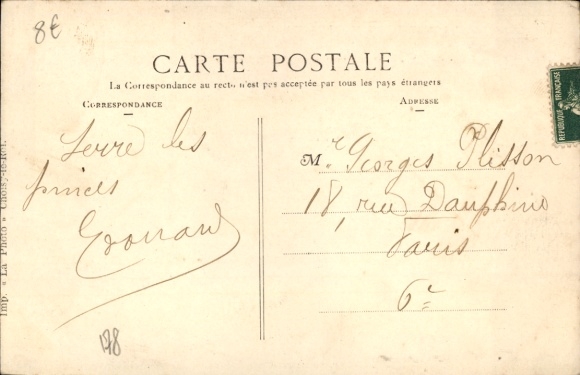 8€
CARTE POSTALE
La Correspondance au recto n'est pas acceptée par tous les pays étrangers
CORRESPONDANCE
ADRESSE
REPUBLIQUE FRANÇAISE
Serre les
pinces
Edouard
Mr. Georges Plisson
18, rue Dauphine
Paris
6e
Imp. « La Photo » Choisy-le-Roi.
178